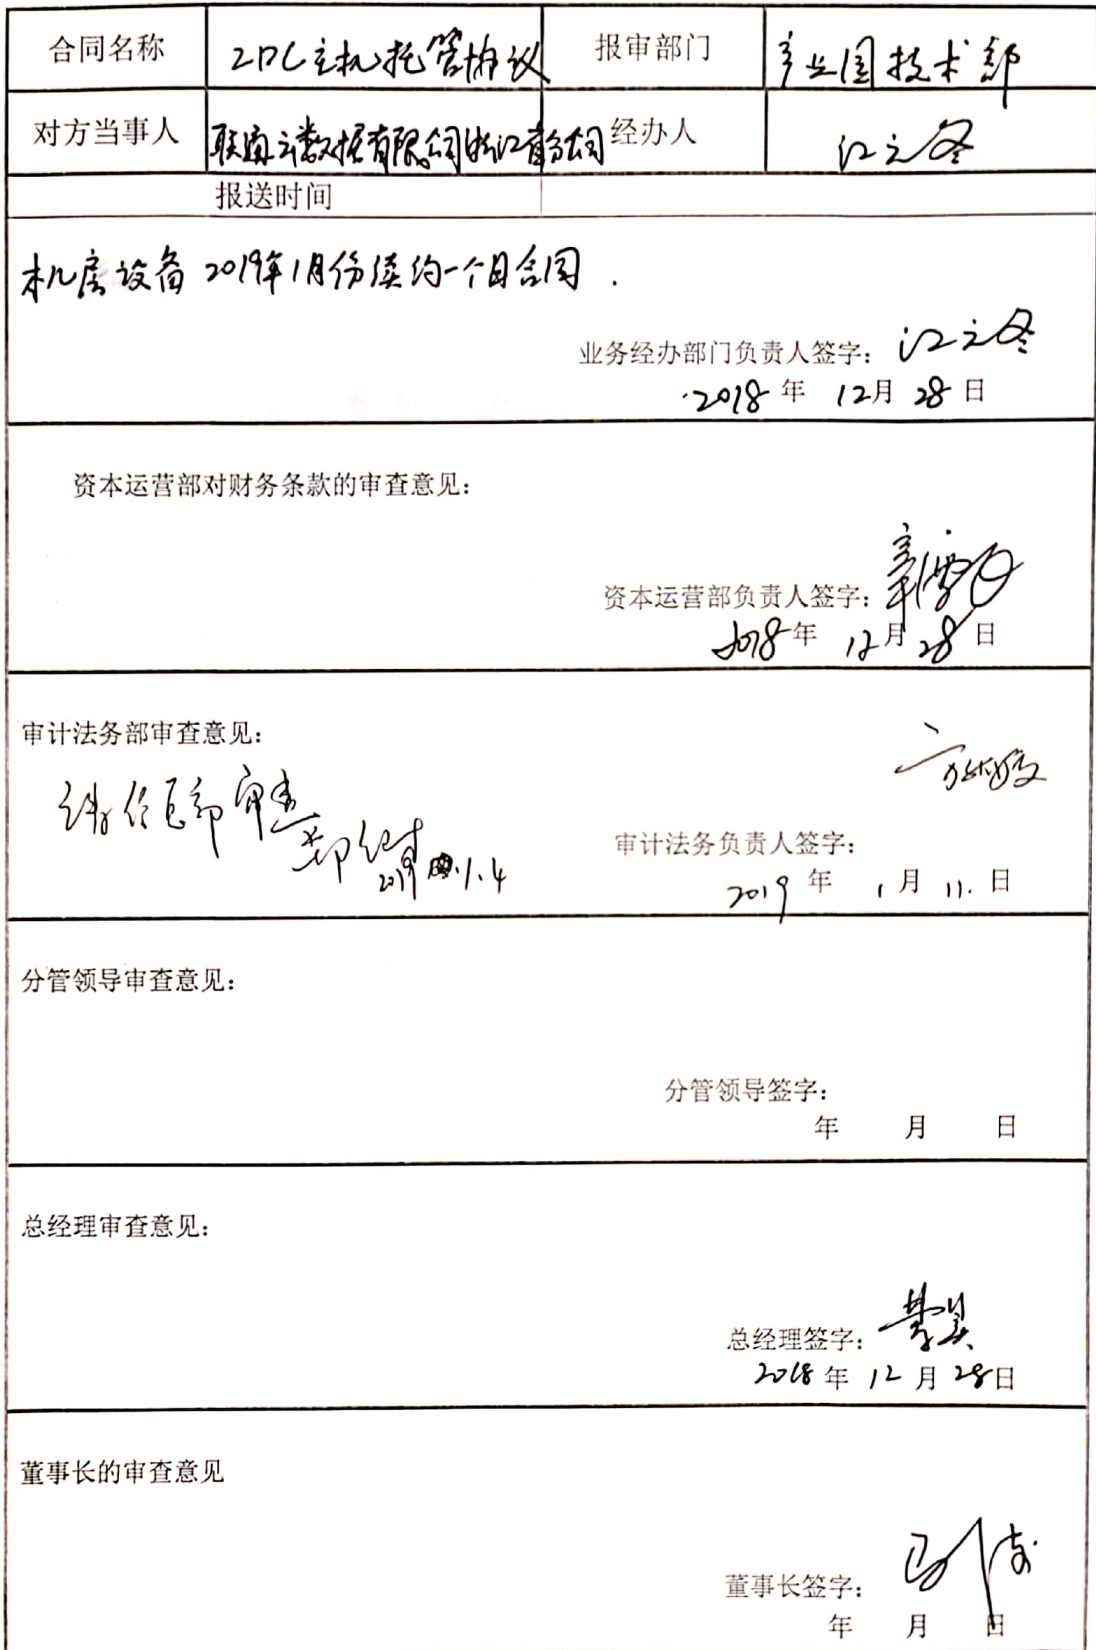 合同名称 IDC主机托管协议 报审部门 产业园技术部
对方当事人 联通云数据有限公司浙江省分公司 经办人 江立冬
报送时间
机房设备2019年1月份续约一个月合同.
业务经办部门负责人签字: 江立冬
2018年 12月 28日
资本运营部对财务条款的审查意见:
资本运营部负责人签字:
2018年 12月 28日
审计法务部审查意见:
请信息部审查
2019.1.4
审计法务负责人签字:
2019年 1月 11.日
分管领导审查意见:
分管领导签字:
年 月 日
总经理审查意见:
总经理签字:
2018年 12月 28日
董事长的审查意见
董事长签字:
年 月 日